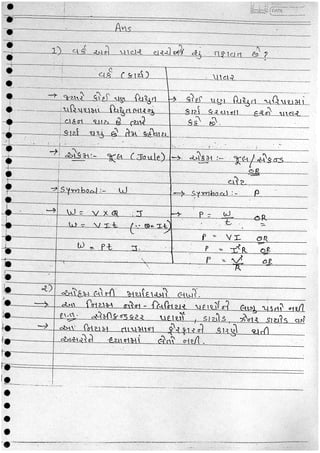 Ans
1) વર્ક અને પાવર વચ્ચેનો શું તફાવત છે?
વર્ક (કાર્ય) પાવર
→ જ્યારે કોઈ પણ વિદ્યુત → કોઈ પણ વિદ્યુત પરિપથમાં
પરિપથમાં વિદ્યુતભારનું કાર્ય કરવાના દરને પાવર
વહન થાય છે ત્યારે કહે છે.
કાર્ય થયું છે તેમ કહેવાય
→ એકમ:- જૂલ (Joule) → એકમ:- જૂલ/સેકન્ડ
OR
વોટ
→ Symbool:- W → Symbool:- P
→ W = V × Q J → P = W/t OR
W = VIt (∵ Q=It) P = VI OR
W = Pt J P = I²R OR
P = V²/R OR
2) ઓહમ લોની મર્યાદાઓ લખો.
→ આ નિયમ નોન-લિનિયર પદાર્થોને લાગુ પડતો નથી
દા.ત. સેમીકન્ડક્ટર પદાર્થો, ડાયોડ, ઝેનર ડાયોડ વગે
→ આ નિયમ તાપમાન ફેરફારને કારણે થતી
અસરોને ધ્યાનમાં લેતો નથી.